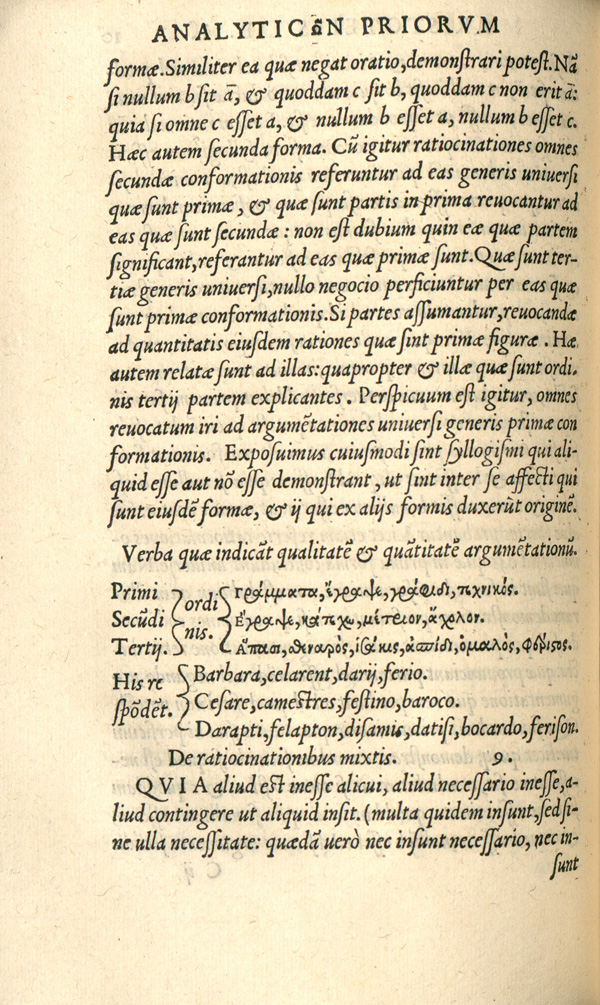 ANALYTICΩN PRIORVM
formæ.Similiter ea quæ negat oratio,demonſtrari poteſt.Nā
ſi nullum b ſit ā, & quoddam c ſit b, quoddam c non erit ā:
quia ſi omne c eſſet a, & nullum b eſſet a, nullum b eſſet c.
Hæc autem ſecunda forma. Cū igitur ratiocinationes omnes
ſecundæ conformationis referuntur ad eas generis uniuerſi
quæ ſunt primæ, & quæ ſunt partis in prima reuocantur ad
eas quæ ſunt ſecundæ: non eſt dubium quin eæ quæ partem
ſignificant,referantur ad eas quæ primæ ſunt.Quæ ſunt ter-
tiæ generis uniuerſi,nullo negocio perficiuntur per eas quæ
ſunt primæ conformationis.Si partes aſſumantur,reuocandæ
ad quantitatis eiuſdem rationes quæ ſint primæ figuræ. Hæ
autem relatæ ſunt ad illas:quapropter & illæ quæ ſunt ordi,
nis tertij partem explicantes. Perſpicuum eſt igitur, omnes
reuocatum iri ad argumētationes uniuerſi generis primæ con
formationis. Expoſuimus cuiuſmodi ſint ſyllogiſmi qui ali-
quid eſſe aut nō eſſe demonſtrant, ut ſint inter ſe affecti qui
ſunt eiuſdē formæ, & ij qui ex alijs formis duxerūt originē.
Verba quæ indicāt qualitatē & quātitatē argumētationū.
Primi ordi γράμματα,ἔγραψε,γραφίδι,τεχνικός.
Secūdi Ἔγραψε,κάτεχε,μέτριον,ἄχολον.
Tertij. nis. Ἅπασι,σθεναρὸς,ἰσάκις,ἀσπίδι,ὁμαλὸς,φέριστος.
His re Barbara,celarent,darij,ferio.
ſpōdēt. Ceſare,cameſtres,feſtino,baroco.
Darapti,felapton,diſamis,datiſi,bocardo,feriſon.
De ratiocinationibus mixtis. 9.
QVIA aliud eſt ineſſe alicui, aliud neceſſario ineſſe,a-
liud contingere ut aliquid inſit. (multa quidem inſunt,ſed ſi-
ne ulla neceſſitate: quædā uerò nec inſunt neceſſario, nec in-
ſunt